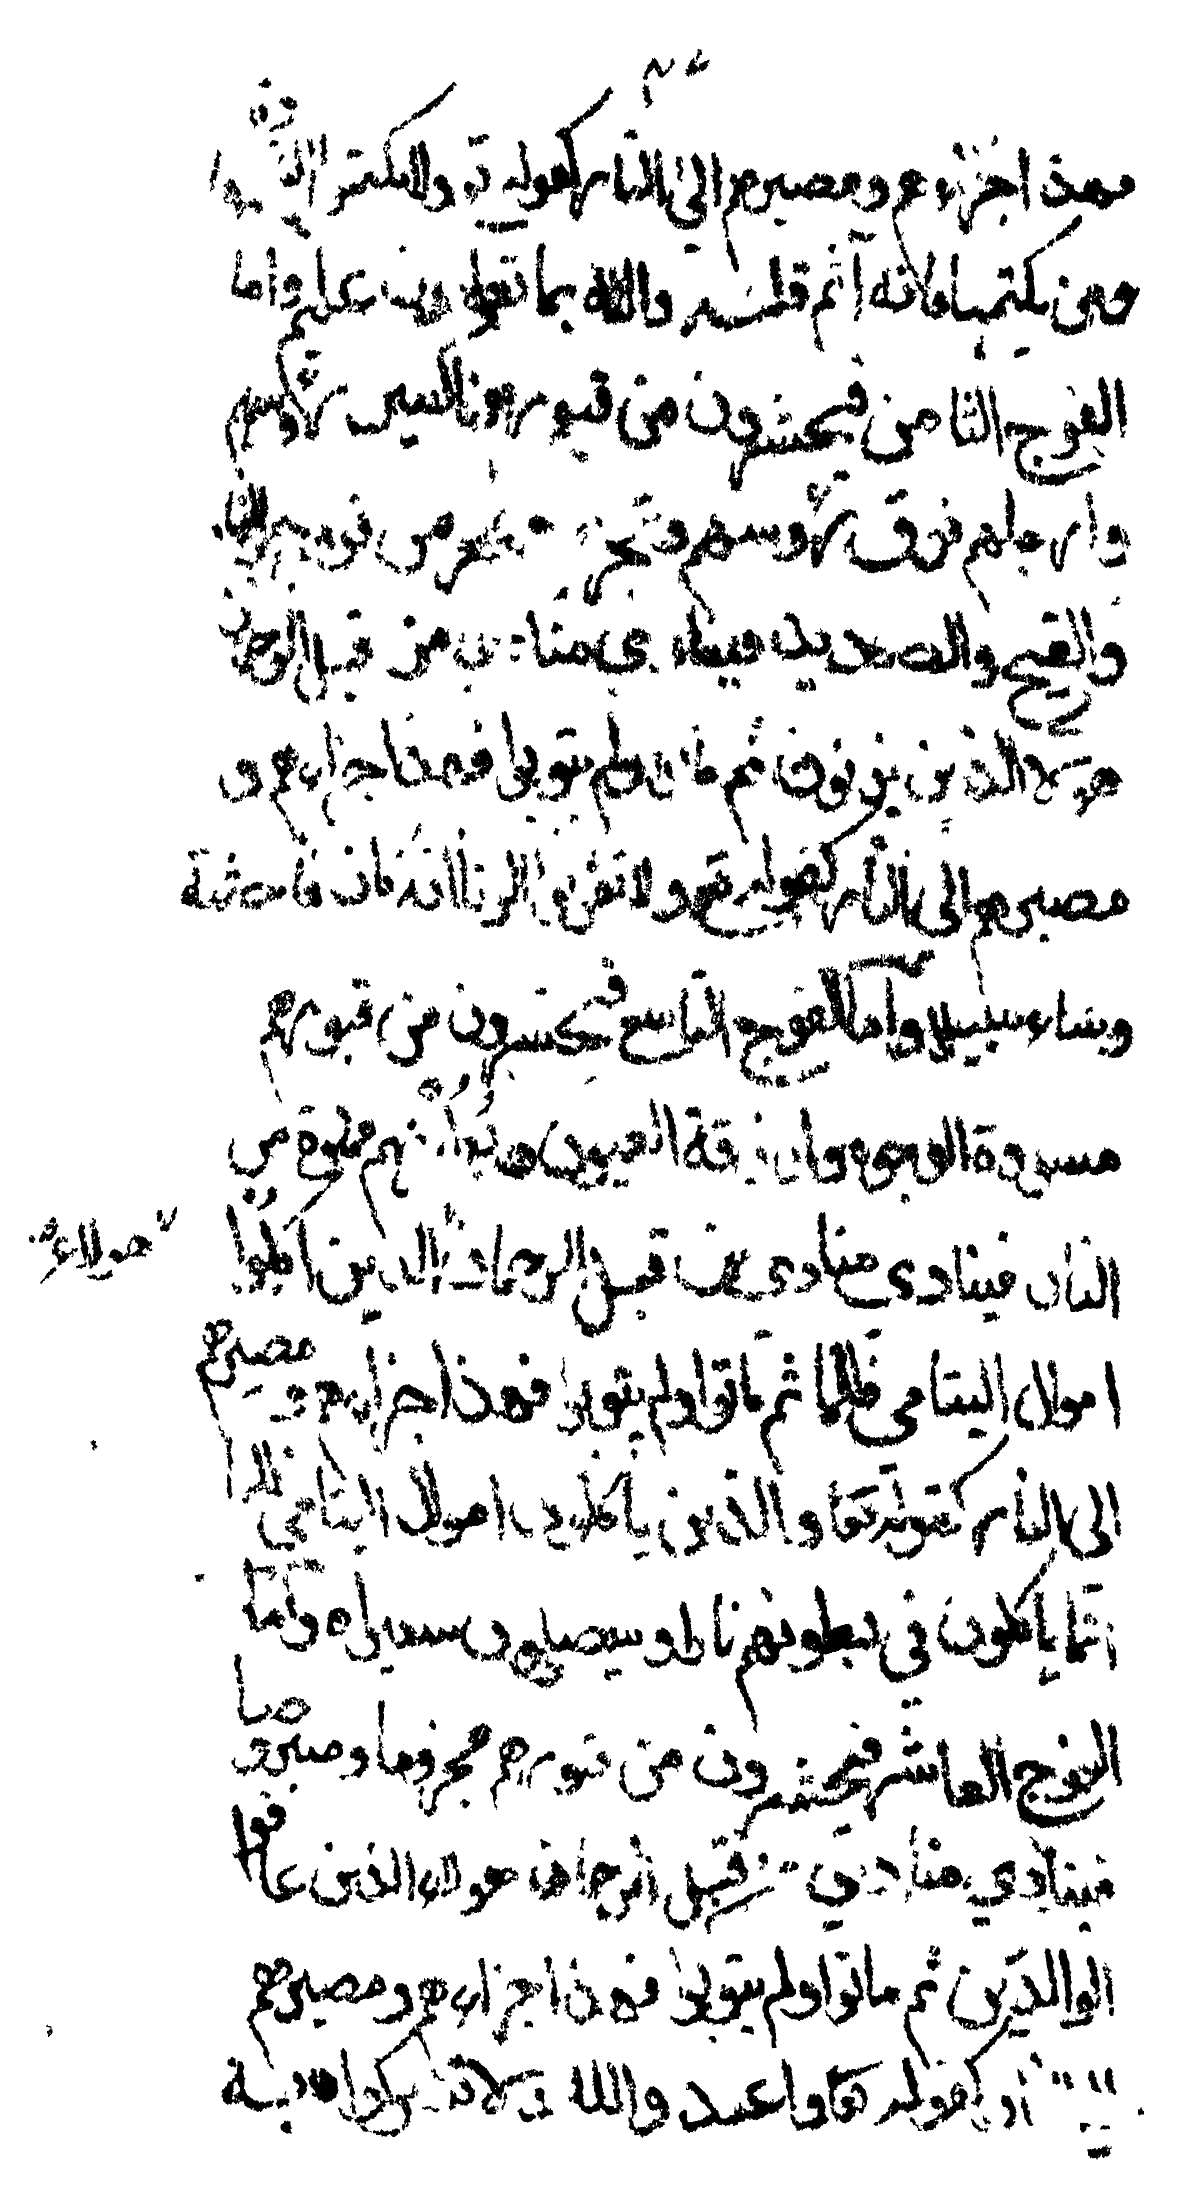 فهذا جزاءهم ومصيرهم الى النار كقوله تع ولا تكتموا الشهادة
ومن يكتمها فانه آثم قلبه والله بما تعملون عليم واما
الفوج الثامن فيحشرون من قبورهم ناكسين رؤسهم
وارجلهم فوق رؤسهم وتجري من فروجهم
والقيح والصديد فينادي مناد من قبل الرحمان
هولاء الذين يزنون ثم ماتوا ولم يتوبوا فهذا جزاءهم و
مصيرهم الى النار كقوله تع ولا تقربوا الزنا انه كان فاحشة
وساء سبيلا واما الفوج التاسع فيحشرون من قبورهم
مسودة الوجوه وازرقة العيون وبطونهم مملوة من
النار فينادى منادى من قبل الرحمان الذين اكلوا
هولاء
اموال اليتامى ظلما ثم ماتوا ولم يتوبوا فهذا جزاءهم ومصيرهم
الى النار كقوله تعا والذين ياكلون اموال اليتامى ظلما
انما ياكلون في بطونهم نارا وسيصلون سعيرا ه واما
الفوج العاشر فيحشرون من قبورهم مجزوما ومبروصا
فينادي منادي من قبل الرحمان هولاء الذين عاقوا
الوالدين ثم ماتوا ولم يتوبوا فهذا جزاءهم ومصيرهم
كقوله تعا واعبدوالله ولا تشركوا به